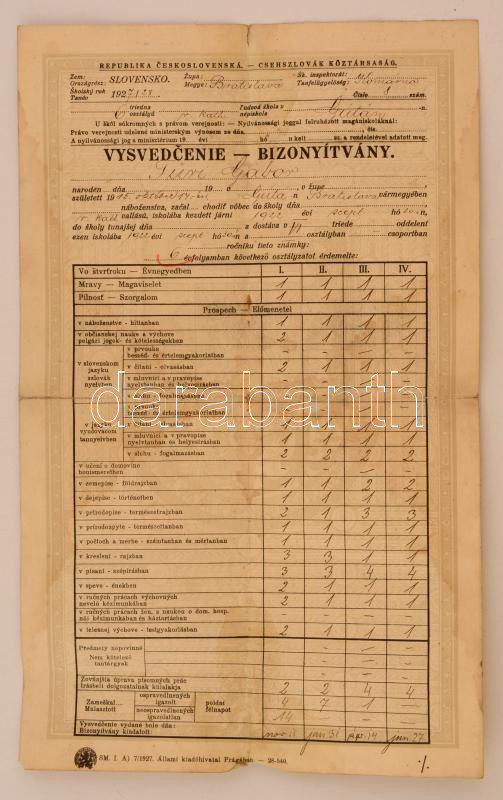 REPUBLIKA ČESKOSLOVENSKÁ. — CSEHSZLOVÁK KÖZTÁRSASÁG.
Zem: SLOVENSKO. Župa: Bratislava Šk. inspektorát: Komárno
Országrész: Megye: Tanfelügyelőség:
Školský rok 1927/28 Číslo 8 szám.
Tanév
6 triedna r. kath. ľudová škola v
osztályú népiskola -n.
U škôl súkromných s právom verejnosti: — Nyilvánossági joggal felruházott magániskoláknál:
Právo verejnosti udelené ministerským výnosom zo dňa čís.
A nyilvánossági jog a ministérium 19 évi hó n kelt sz. a rendeletével adatott meg.
VYSVEDČENIE — BIZONYÍTVÁNY.
Gábor
narodený dňa 19 v v župe
született 1915 október 14-én Bratislava vármegyében
náboženstva, začal chodiť vôbec do školy dňa
r. kath vallású, iskolába kezdett járni 1922 évi szept hó -n,
do školy tunajšej dňa a dostáva v triede oddelení
ezen iskolába 1922 évi szept hó -n a osztályban csoportban
ročníku tieto známky:
6 évfolyamban következő osztályzatot érdemelte:
Vo štvrťroku — Évnegyedben I. II. III. IV.
Mravy — Magaviselet 1 1 1 1
Pilnosť — Szorgalom 1 1 1 1
Prospech — Előmenetel
v náboženstve - hittanban 1 1 1 1
v občianskej nauke a výchove
polgári jogok- és kötelességekben 2 1 1 1
v slovenskom jazyku
szlovák nyelvben
v prvouke
beszéd- és értelemgyakorlatban - - - -
v čítaní - olvasásban 2 1 1 1
v mluvnici a v pravopise
nyelvtanban és helyesírásban - - - -
v slohu - fogalmazásban - - - -
v jazyku vyučovacom
tannyelvben
v prvouke
beszéd- és értelemgyakorlatban - - - -
v čítaní - olvasásban 1 1 1 1
v mluvnici a v pravopise
nyelvtanban és helyesírásban 1 1 1 1
v slohu - fogalmazásban 2 2 2 2
v učení o domovine
honismeretben - - - -
v zemepise - földrajzban 1 1 2 2
v dejepise - történetben 1 1 1 1
v prírodopise - természetrajzban 2 1 3 3
v prírodozpyte - természettanban 1 1 1 1
v počtoch a merbe - számtanban és mértanban 1 1 1 1
v kreslení - rajzban 3 3 1 1
v písaní - szépírásban 3 3 4 4
v speve - énekben 2 1 1 1
v ručných prácach výchovných
nevelő kézimunkában 2 1 1 1
v ručných prácach žen. s naukou o dom. hosp.
női kézimunkában és háztartásban - - - -
v telesnej výchove - testgyakorlásban 2 1 1 1
Predmety nepovinné
Nem kötelező tantárgyak
Zovnajšia úprava písomných prác
Írásbeli dolgozatainak külalakja 2 2 4 4
Zameškal
Mulasztott
ospravedlnených
igazolt
neospravedlnených
igazolatlan
poldní
félnapot
4 7 1 —
14 - - -
Vysvedčenie vydané bolo dňa:
Bizonyítvány kiadatott: nov. jan 31 apr. 14 jun. 27
ŠM. I. A) 7/1927. Állami kiadóhivatal Prágában — 28-540. ·/.
darabanth